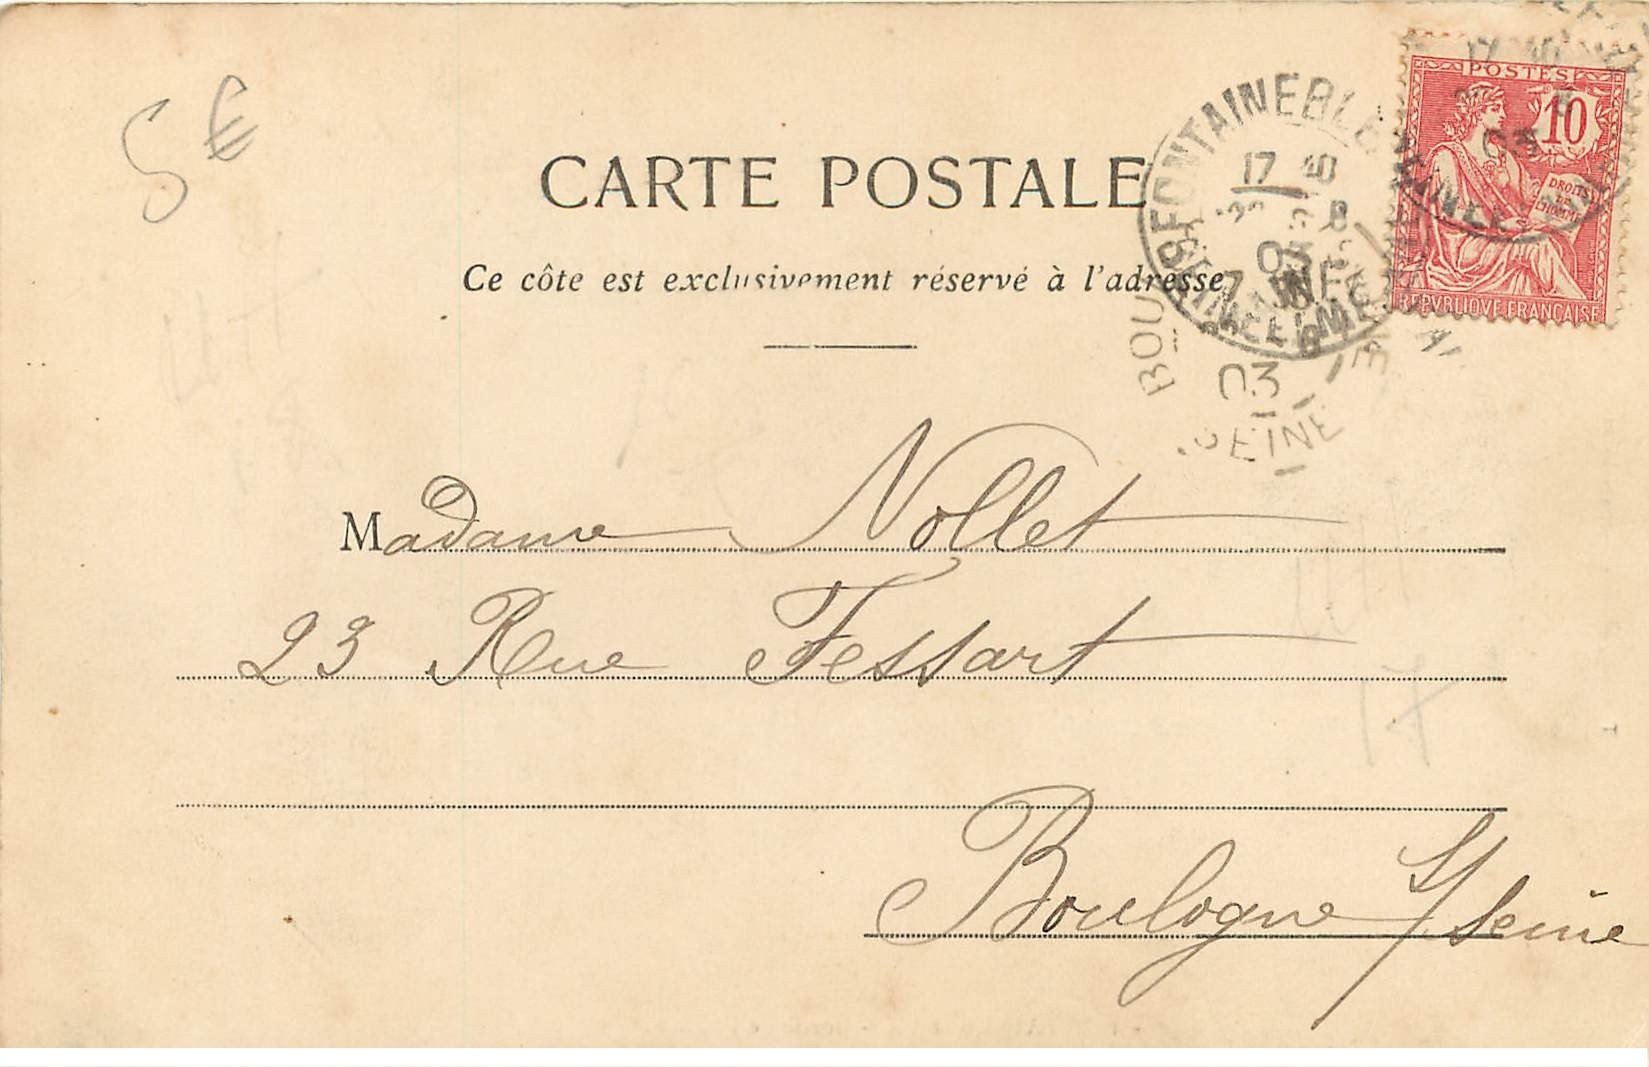 5€
POSTES
10
DROITS
DE
L'HOMME
REPVBLIQVE FRANÇAISE
FONTAINEBLEAU
17 40
03
SEINE ET MARNE
03
SEINE
CARTE POSTALE
Ce côte est exclusivement réservé à l'adresse
Madame Nollet
23 Rue Fessart
Boulogne s/seine
17